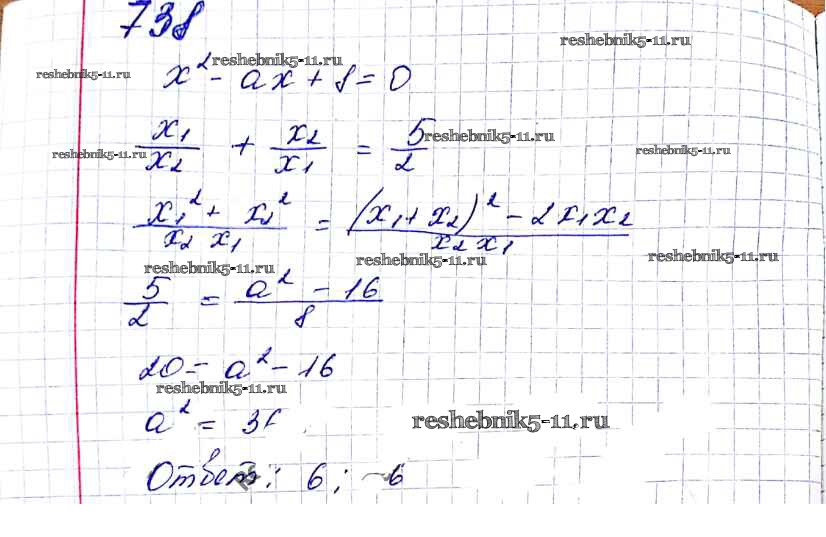 738
reshebnik5-11.ru
reshebnik5-11.ru
reshebnik5-11.ru
x² - ax + 8 = 0
reshebnik5-11.ru
x₁/x₂ + x₂/x₁ = 5/2
reshebnik5-11.ru
reshebnik5-11.ru
(x₁² + x₂²)/(x₂ x₁) = ((x₁ + x₂)² - 2x₁x₂)/(x₂ x₁)
reshebnik5-11.ru
reshebnik5-11.ru
reshebnik5-11.ru
5/2 = (a² - 16)/8
20 = a² - 16
reshebnik5-11.ru
a² = 36
reshebnik5-11.ru
Ответ: 6; -6